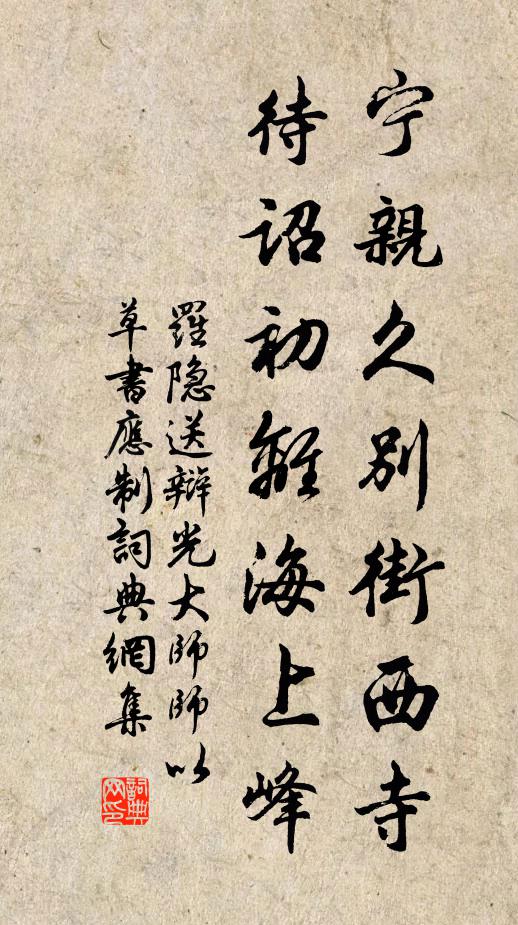 宁親久别街西寺
待诏初離海上峰
羅隐送辩光大师师以
草書應制詞典網集
詞典网印